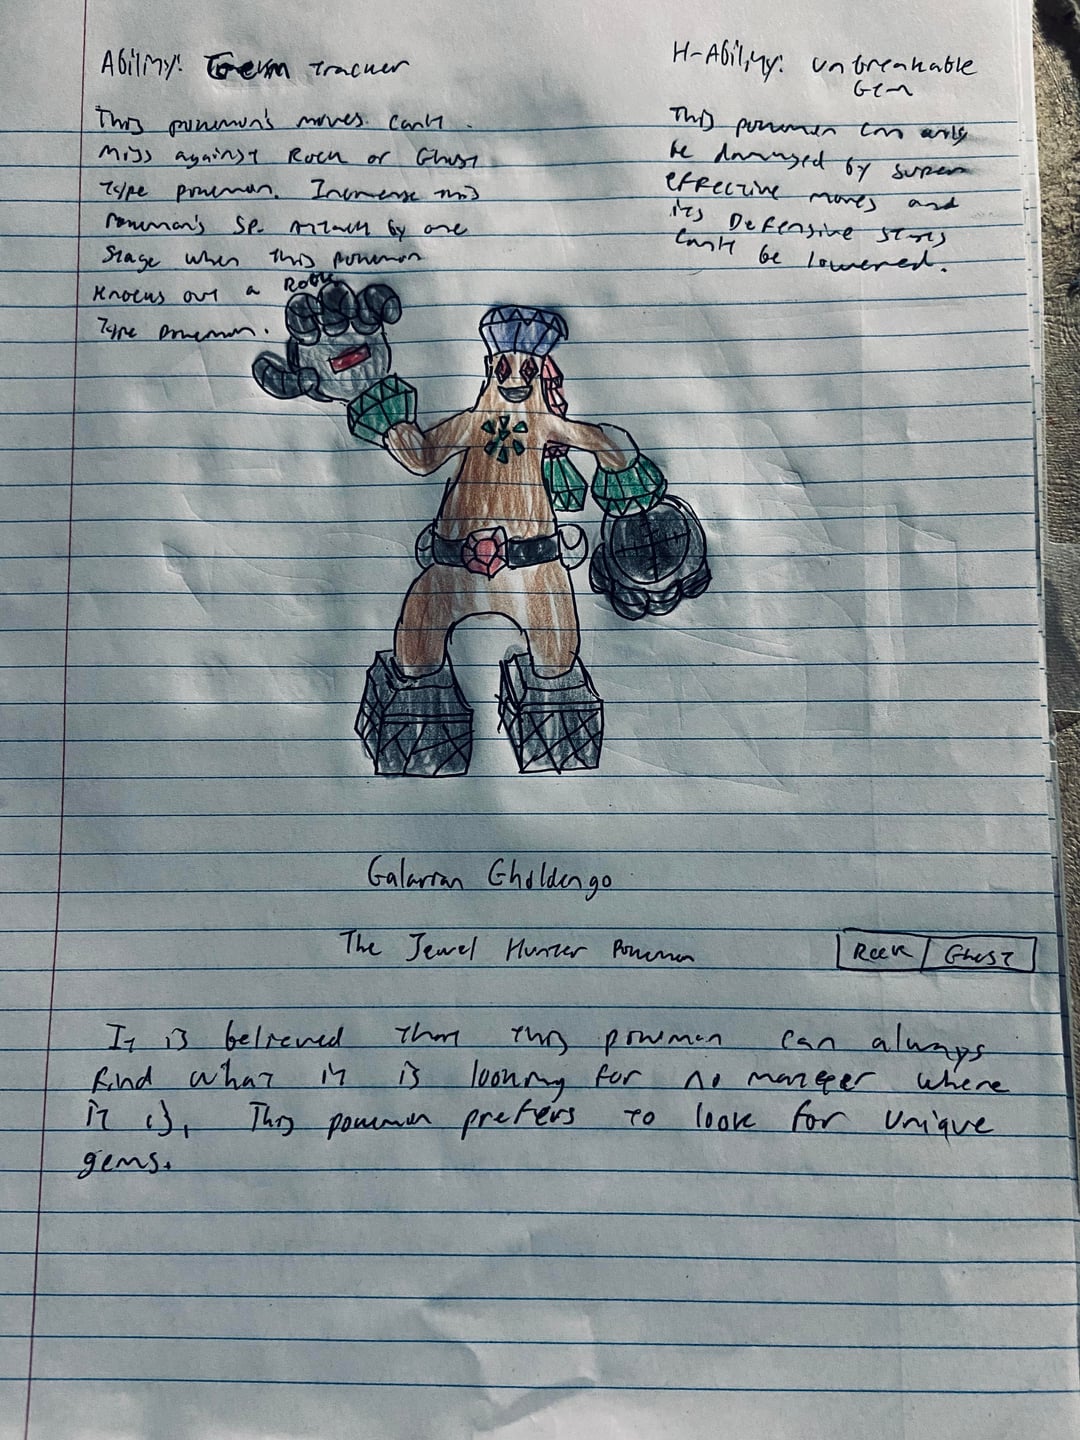 Ability: Gem Tracker
This pokemon's moves can't
miss against Rock or Ghost
type pokemon. Increase this
Pokemon's Sp. Attack by one
stage when this pokemon
knocks out a Rock
Type pokemon.
H-Ability: Unbreakable
Gem
This pokemon can only
be damaged by super
effective moves and
its Defensive stats
can't be lowered.
Galarian Gholdengo
The Jewel Hunter Pokemon
Rock / Ghost
It is believed that this pokemon can always
find what it is looking for no matter where
it is. This pokemon prefers to look for unique
gems.